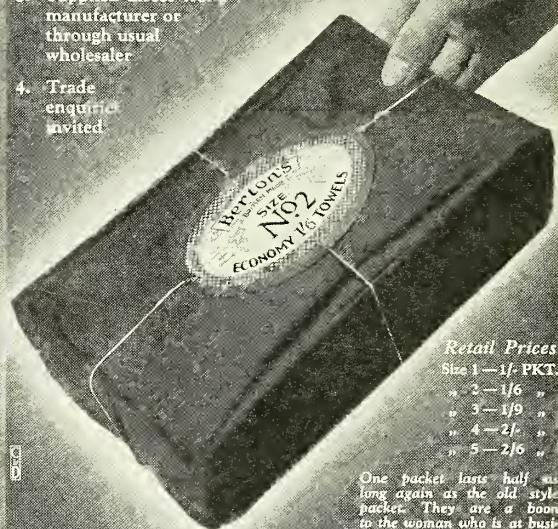 manufacturer or
through usual
wholesaler
4. Trade
enquiries
invited
Berton's
SIZE
No. 2
ECONOMY 1/6 TOWELS
Retail Prices
Size 1—1/- PKT.
„ 2—1/6 „
„ 3—1/9 „
„ 4—2/- „
„ 5—2/6 „
One packet lasts half as
long again as the old style
packet. They are a boon
to the woman who is at